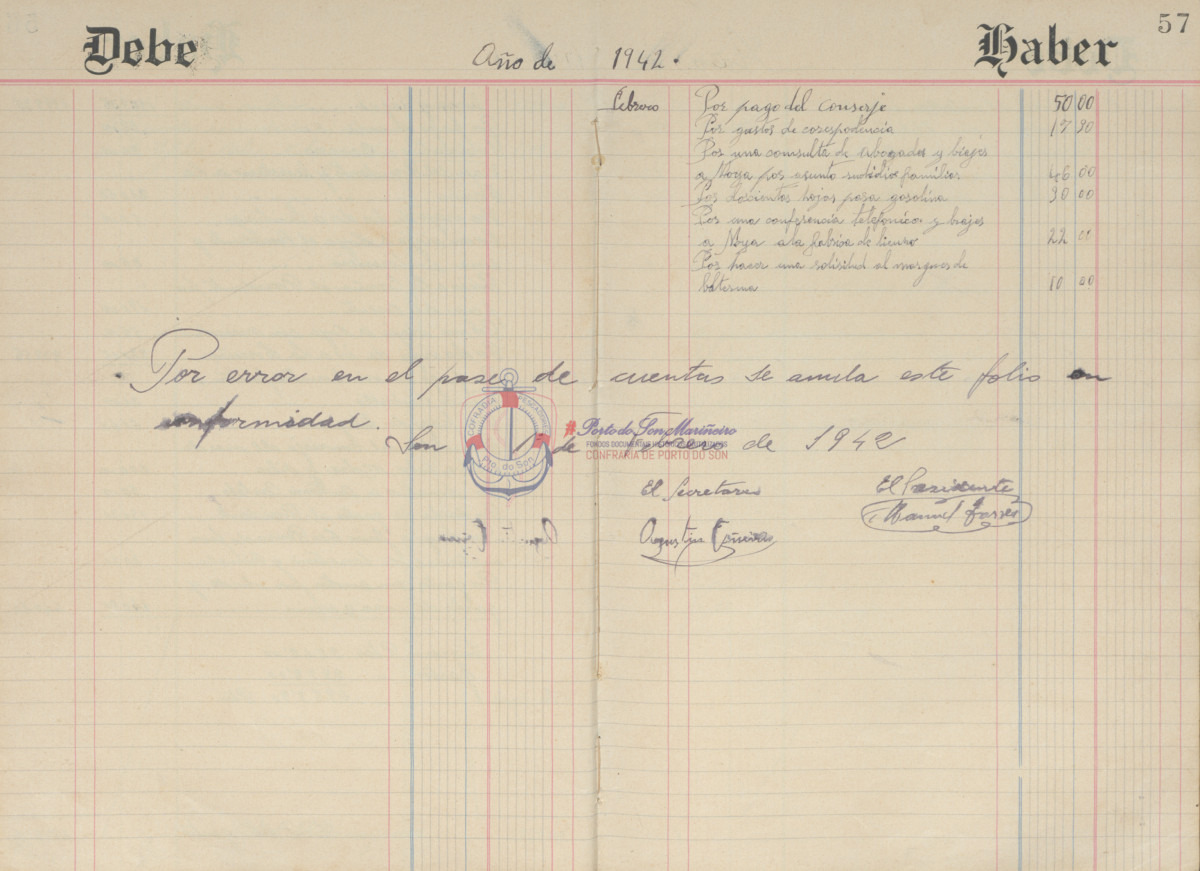 57
Debe
Haber
Año de 1942.
Febrero Por pago del Conserje 50 00
Por gastos de corespodencia 17 90
Por una consulta de abogades y biajes
a Noya por asunto subsidio familiar 46 00
Por doscientas hojas para gasolina 30 00
Por una conferencia telefonica y biajes
a Noya a la fabrica de 22 00
Por hacer una solisitud al marques de
10 00
Por error en el pase de cuentas se anula este folio en
conformidad.
Son 1 de Febrero de 1942
COFRADÍA PESCADORES
Pto. do Son
#Porto do Son Mariñeiro
FONDOS DOCUMENTAIS
CONFRARÍA DE PORTO DO SON
El Secretario
El Presidente
Manuel
Agustin